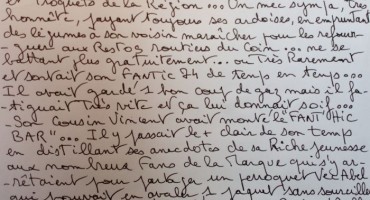 et Troquets de la Région... Un mec sympa, très
honnête, payant toujours ses ardoises, en empruntant
des légumes à son voisin maraîcher pour les refour-
-guer aux Restos routiers du Coin... ne se
battant plus gratuitement... ou Très Rarement
et sortait son FANTIC 74 de temps en temps...
Il avait gardé 1 bon coup de gaz mais il fa-
-tiguait Très vite et ça lui donnait soif...
- Son Cousin Vincent avait monté le "FANTIC
BAR"... Il y passait le + clair de son temps
en distillant ses anecdotes de sa Riche jeunesse
aux nombreux Fans de la Marque qui s'y ar-
-rêtaient pour partager un perroquet
qui pouvait en avaler 1 paquet sans sourciller